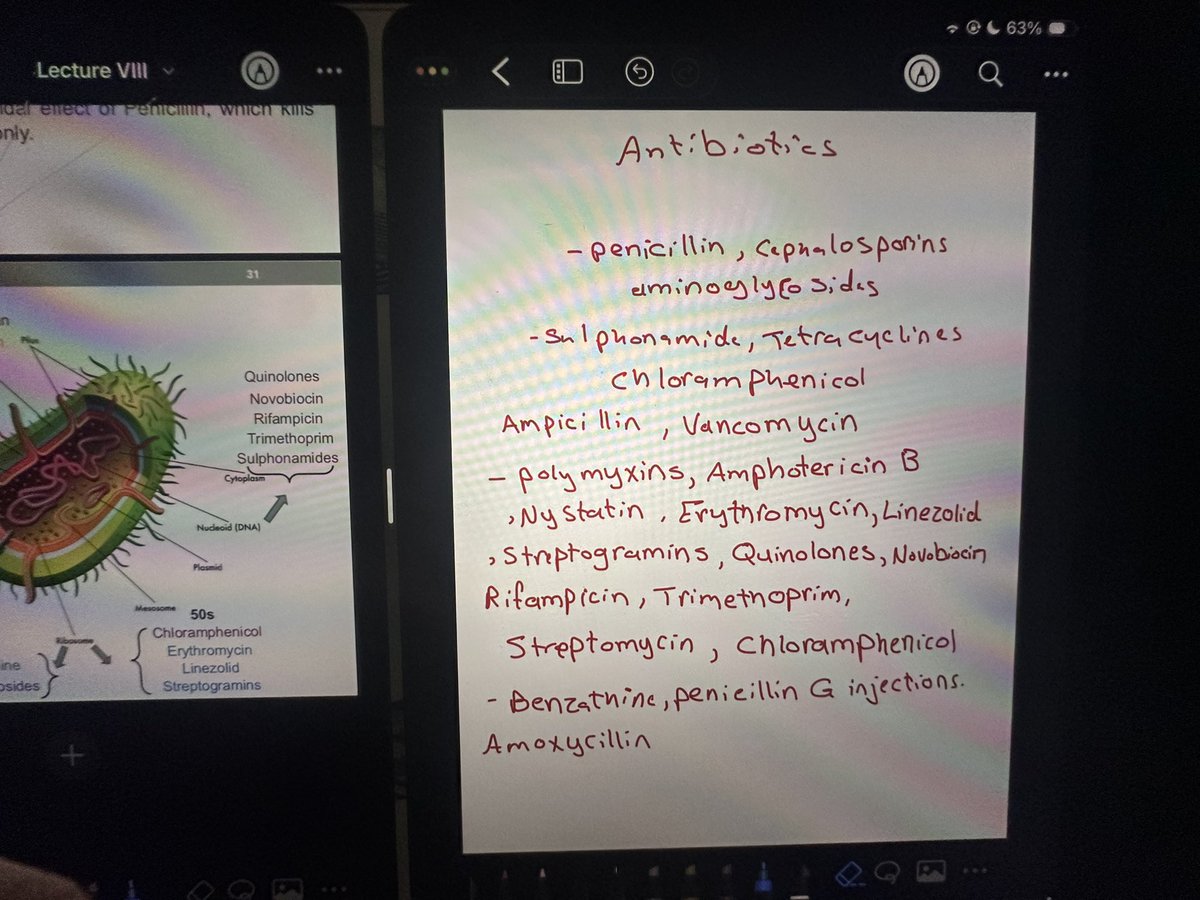 Lecture VIII
63%
effect of Penicillin, which kills
only.
31
Pilus
Quinolones
Novobiocin
Rifampicin
Trimethoprim
Sulphonamides
Cytoplasm
Nucleoid (DNA)
Plasmid
Mesosome
50s
Ribosome
Chloramphenicol
Erythromycin
Linezolid
Streptogramins
Antibiotics
- penicillin, Cephalosporins
aminoglycosides
- Sulphonamide, Tetracyclines
Chloramphenicol
Ampicillin, Vancomycin
- polymyxins, Amphotericin B
, Nystatin, Erythromycin, Linezolid
, Streptogramins, Quinolones, Novobiocin
Rifampicin, Trimethoprim,
Streptomycin, Chloramphenicol
- Benzathine, penicillin G injections.
Amoxycillin